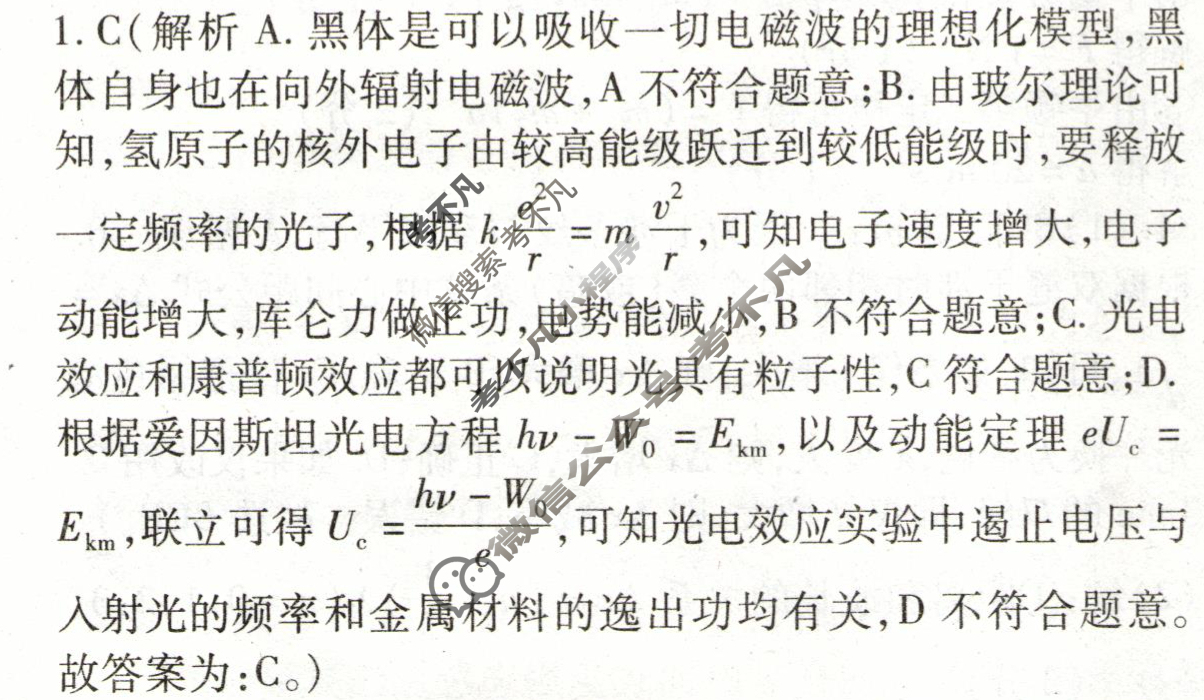 1. C(解析 A. 黑体是可以吸收一切电磁波的理想化模型,黑
体自身也在向外辐射电磁波,A 不符合题意;B. 由玻尔理论可
知,氢原子的核外电子由较高能级跃迁到较低能级时,要释放
一定频率的光子,根据 k e²/r = m v²/r,可知电子速度增大,电子
动能增大,库仑力做正功,电势能减小,B 不符合题意;C. 光电
效应和康普顿效应都可以说明光具有粒子性,C 符合题意;D.
根据爱因斯坦光电方程 hν − W₀ = Eₖₘ,以及动能定理 eU_c =
Eₖₘ,联立可得 U_c = (hν − W₀)/e,可知光电效应实验中遏止电压与
入射光的频率和金属材料的逸出功均有关,D 不符合题意。
故答案为:C。)
考不凡
微信搜索 考不凡
考不凡小程序
微信公众号 考不凡